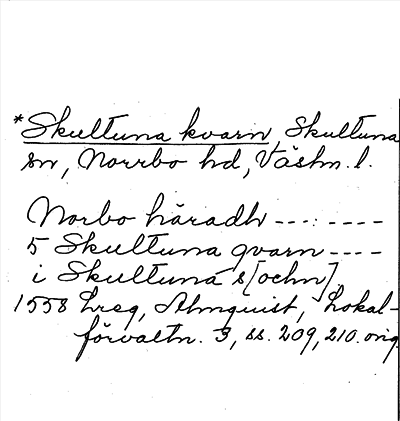 *Skultuna kvarn, Skultuna
sn, Norrbo hd, Västm. l.
Norbo häradh ---:----
5 Skultuna qvarn ----
i Skultuna s[ochn]
1558 Lreg, Almquist, Lokal-
förvaltn. 3, ss. 209, 210. orig.